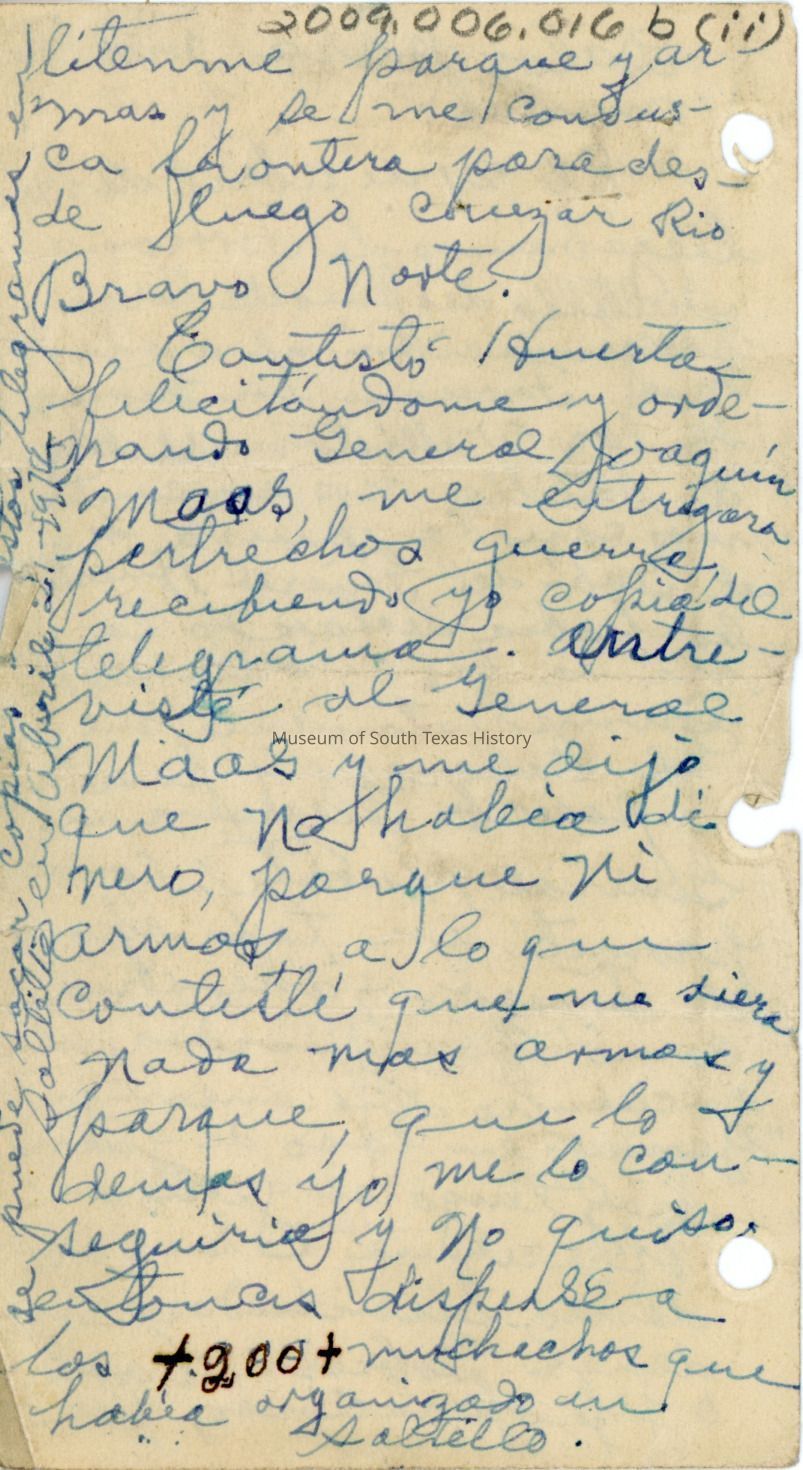 2009.006.016 b (ii)
litenme parque y ar-
mas y se me condus-
ca frontera para des-
de fluego cruzar Rio
Bravo Norte.
Contestó Huerta
felicitándome y orde-
nando General Joaquín
Maas, me entrigara
pertrechos guerra,
recibiendo yo copia del
telegrama. Entre-
visté al General
Maas y me dijo
que no había di
nero, porque ni
armas, a lo que
contesté que me diera
nada mas armas y
parque, que lo
demas yo me lo con-
seguiria y no quiso.
entonces dispensé a
los +200+ muchachos que
había organizado en
Saltillo.
se puede sacar copias estos telegramas en
Saltillo en Abril 21-1914
Museum of South Texas History